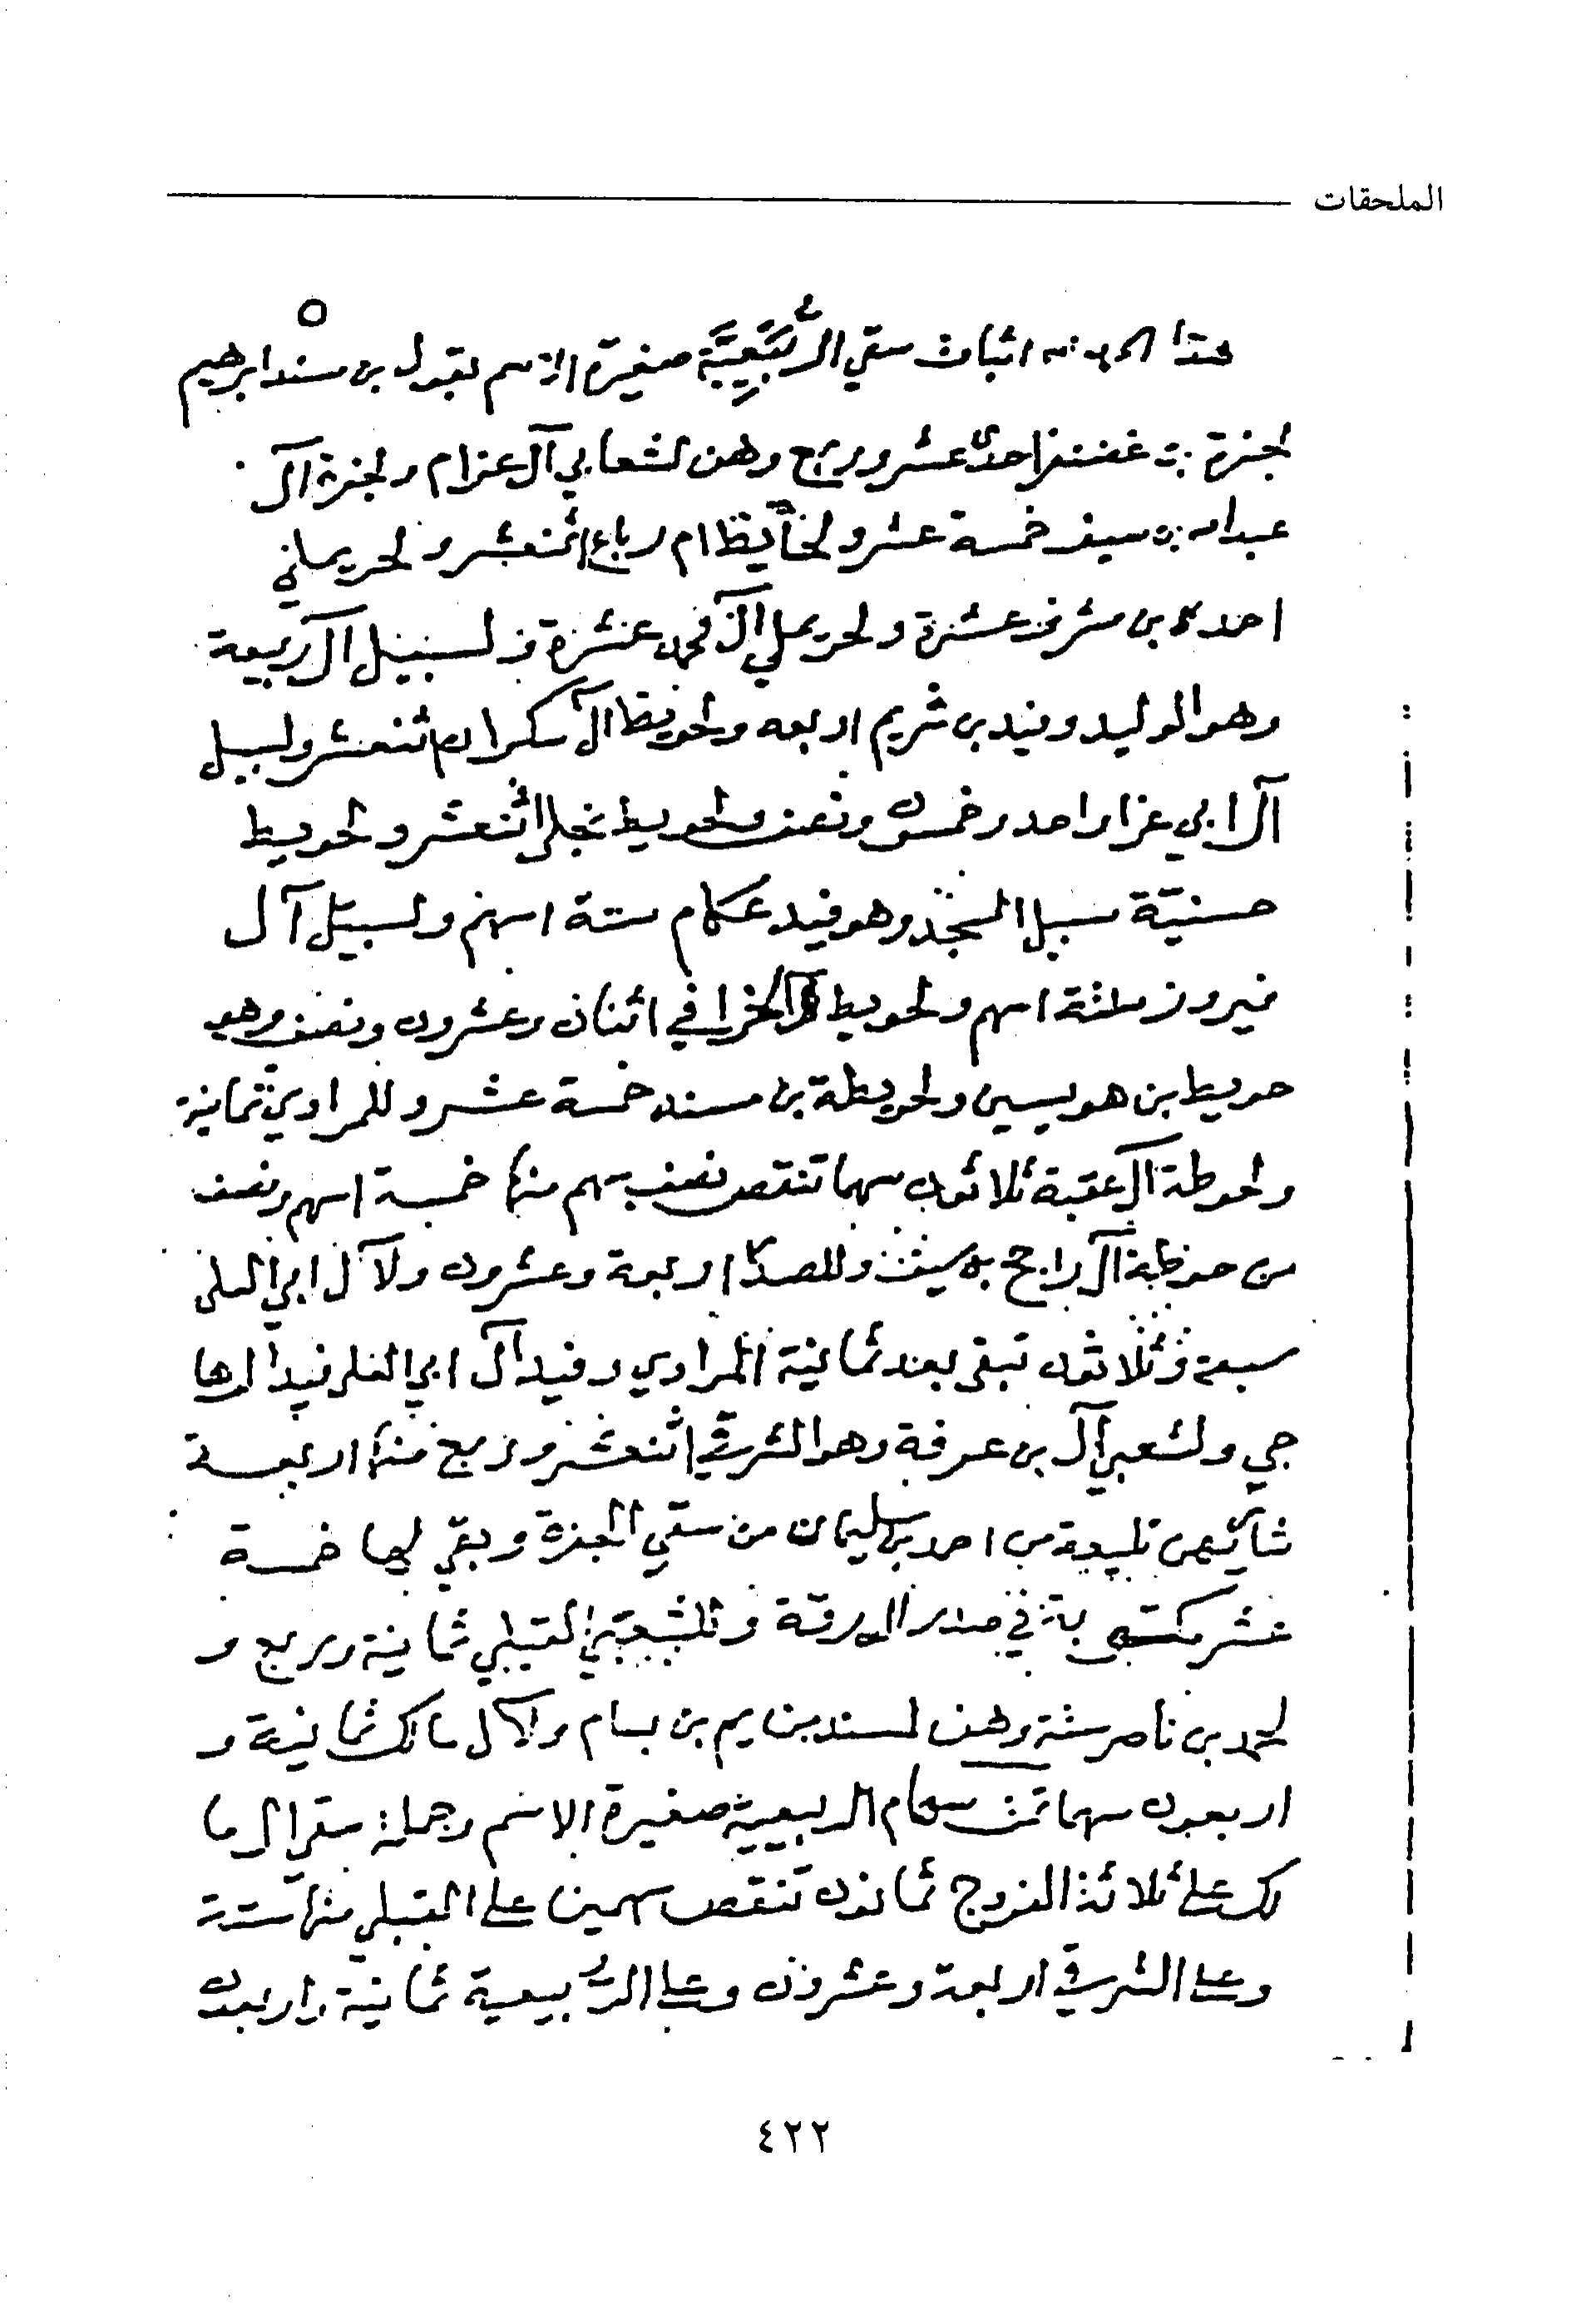 الملحقات
٥
هذا اثبات سقي الربيعية صغيرة الاسم بقول بن سند ابرهيم
لجنزة بن غضنفر احدى عشر وربع وهن لشعابي آل عزام ولجنزة آل
عبدالله بن سيف خمسة عشر ولحايظ ام رباع اثنعشر ولحريملي
احمد بن مشرف عشرة ولحريملي آل محمد عشرة ولسبيل آل ربيعة
وهو الوليد وفيد بن شريم اربعه ولحويط آل سكران اثنعشر ولسبيل
آل ابي عزاز واحد وخمسون ونصف ولحويط نجلا اثنعشر ولحويط
حسنية سبل المسجد وهو فيد عكام ستة اسهم ولسبيل آل
فيروز ثلثة اسهم ولحويط الخرافي اثنان وعشرون ونصف وهو
حويط بن هويسين ولحويطة بن مسند خمسة عشر وللمرادي ثمانية
ولحوطة آل عقبة ثلاثون سهما تنقص نصف سهم منها خمسة اسهم ونصف
من حوطة آل راجح بن سيف وللصدا اربعة وعشرون ولآل ابي العلى
سبعة وثلاثون تبقى بعد ثمانية المرادي وفيد آل ابي العلى فيد
جي ولشعبي آل بن عرفة وهو الشرقي اثنعشر وربع منها اربعة
شائعهن تليعة من احمد بن سليمان من سقي الجنزة وبقي لها خمسة
عشر مكتوبة في صدر الورقة وللشعبي القبلي ثمانية وربع و
لحمد بن ناصر ستة وهن لسند بن يم بن بسام ولآل مالك ثمانية و
اربعون سهما تمت سهام الربيعية صغيرة الاسم وجملة سقي آل ما
لك على ثلاثة الفروج ثمانون تنقص سهمين على القبلي منها ستة
وعلى الشرقي اربعة وعشرون وعلى الربيعية ثمانية واربعون
٤٢٢